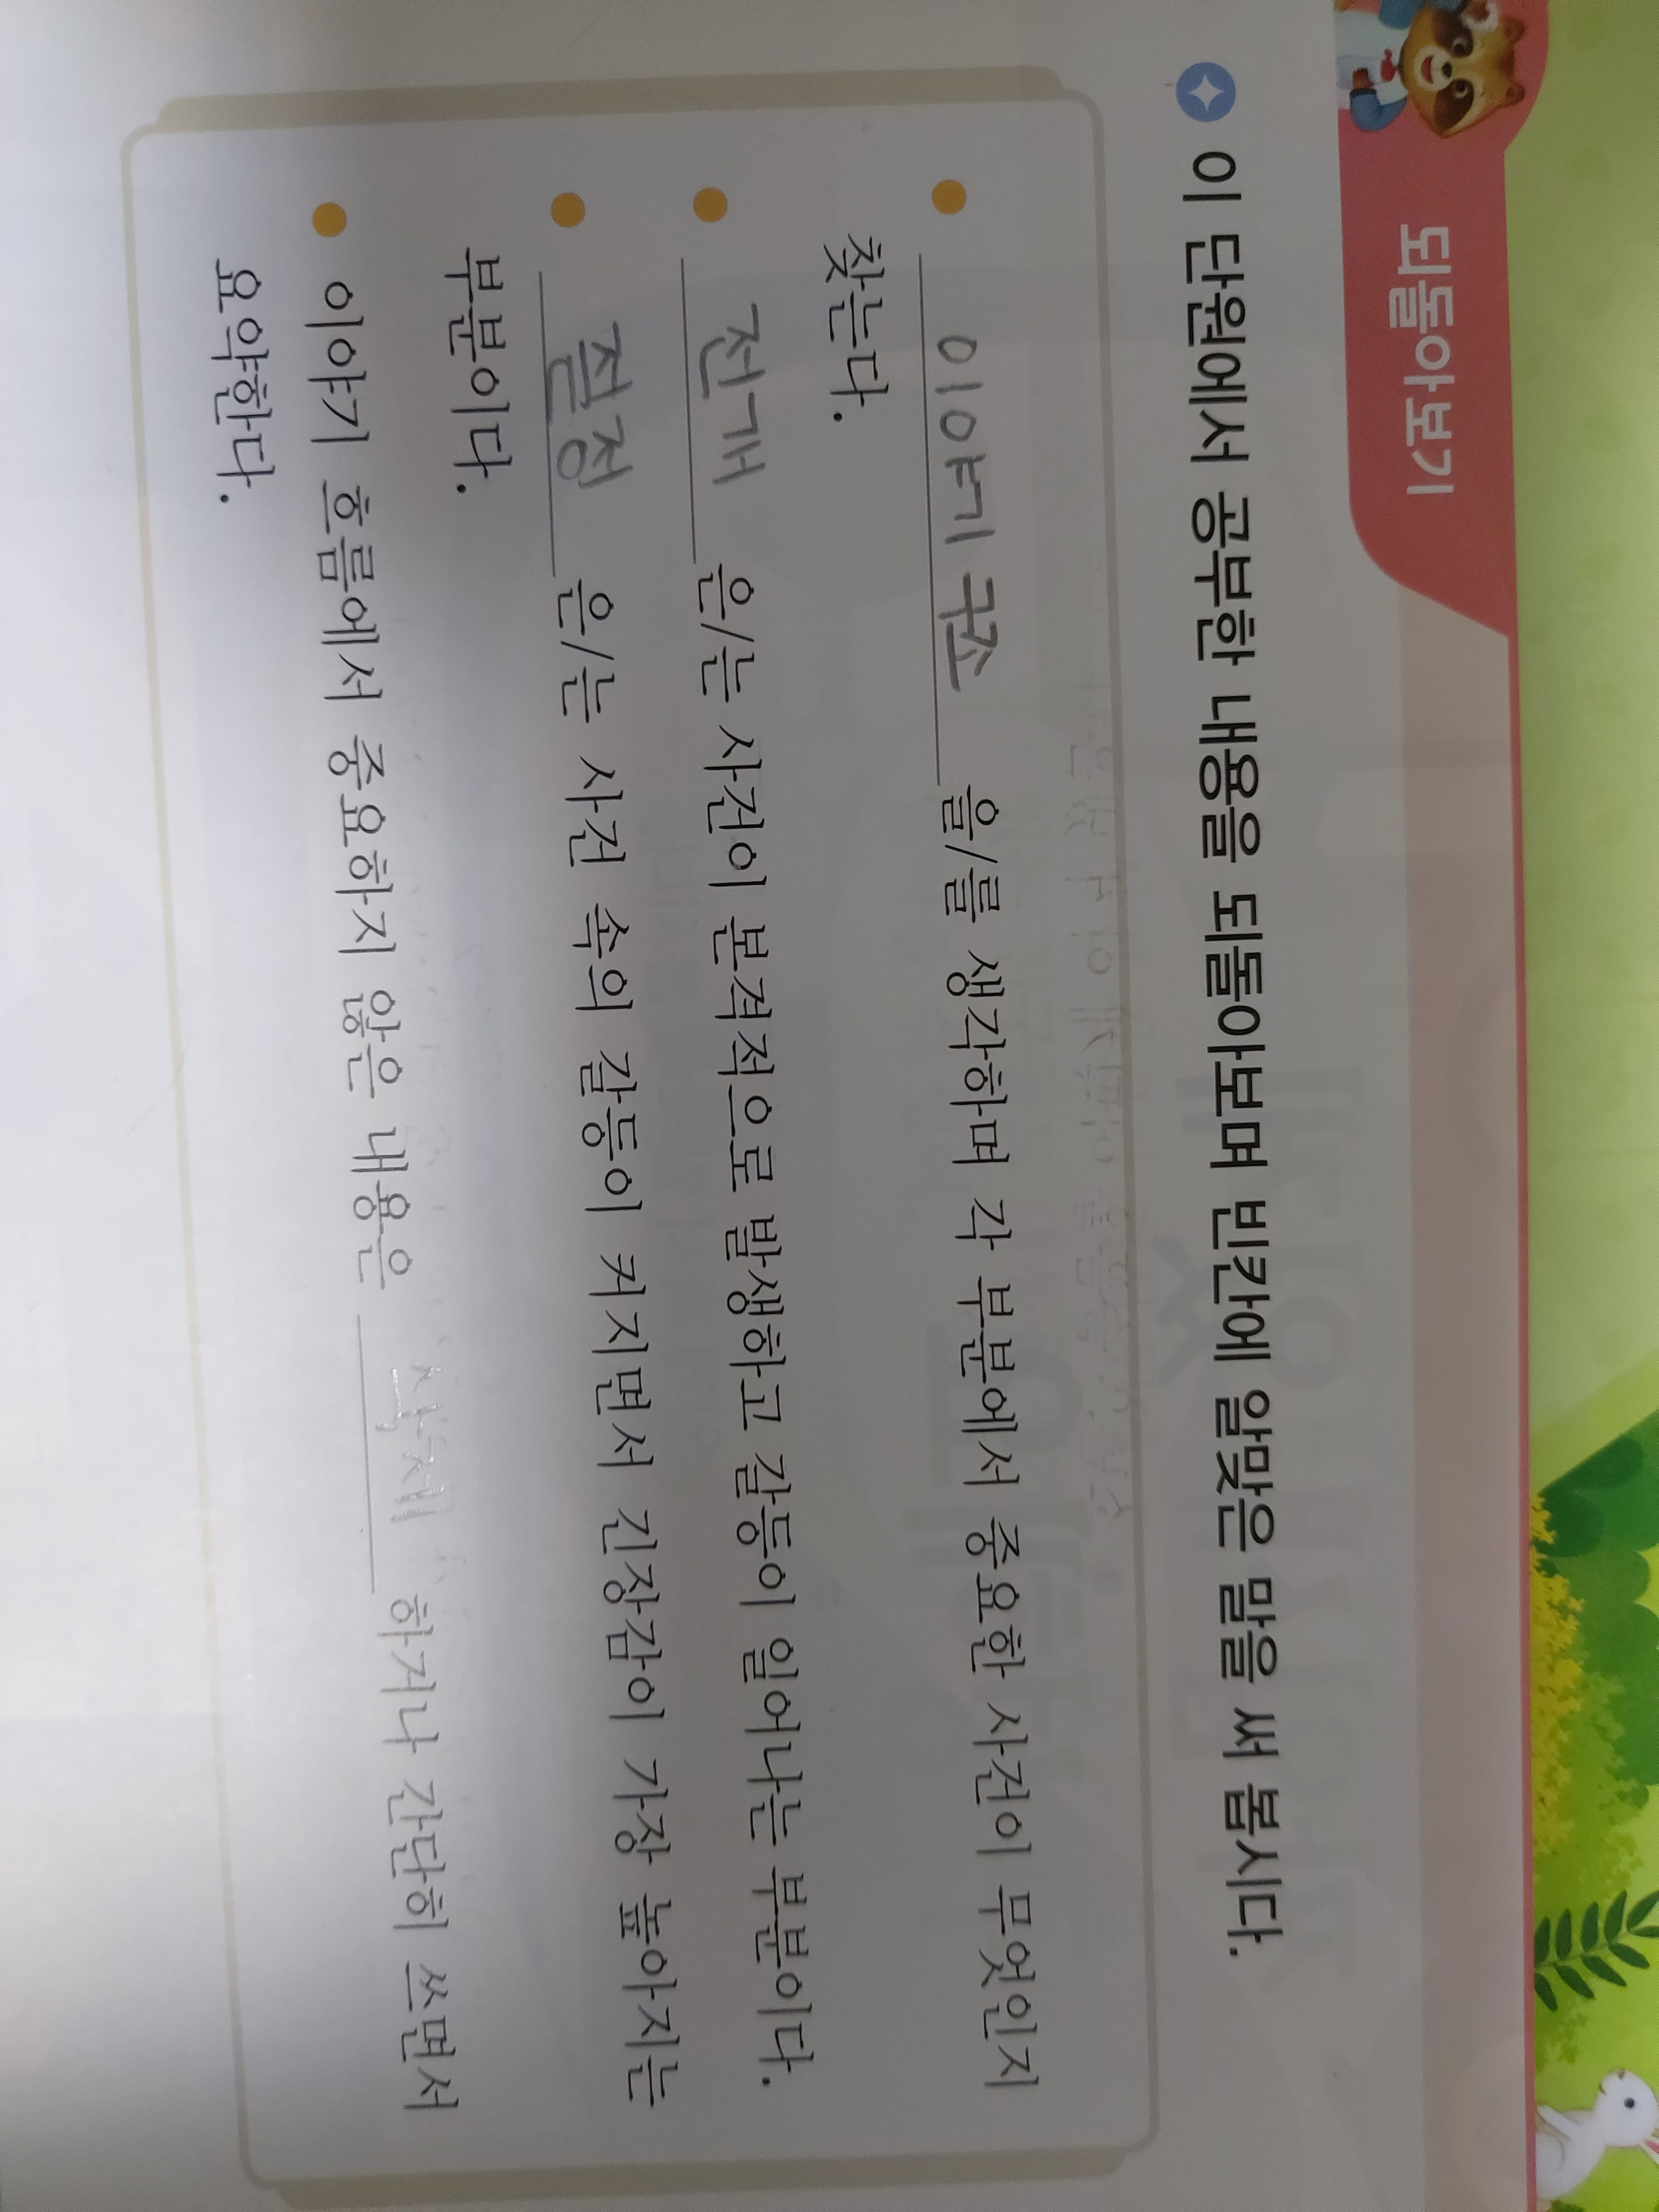 되돌아보기
이 단원에서 공부한 내용을 되돌아보며 빈칸에 알맞은 말을 써 봅시다.
이야기 구조 을/를 생각하며 각 부분에서 중요한 사건이 무엇인지
찾는다.
전개 은/는 사건이 본격적으로 발생하고 갈등이 일어나는 부분이다.
절정 은/는 사건 속의 갈등이 커지면서 긴장감이 가장 높아지는
부분이다.
이야기 흐름에서 중요하지 않은 내용은 삭제 하거나 간단히 쓰면서
요약한다.